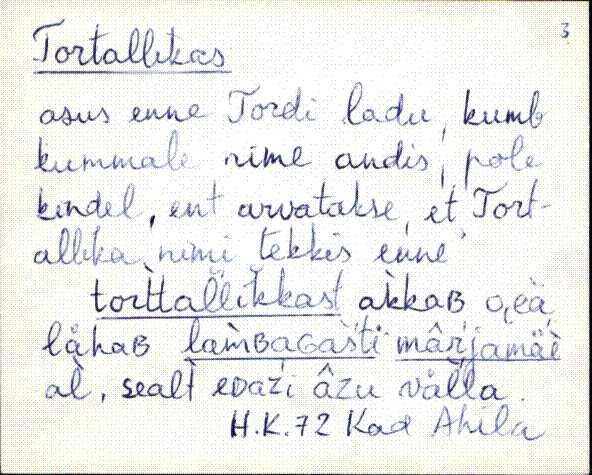 3
Tortallikas
asus enne Tordi ladu, kumb
kummale nime andis, pole
kindel, ent arvatakse, et Tort-
allika nimi tekkis enne
tort̀tallikkast akkaʙ
lähaʙ lam̀ʙaɢasti mârjamäe
al̀, sealt eᴅazi âzu välla.
H.K.72 Kad Ahila